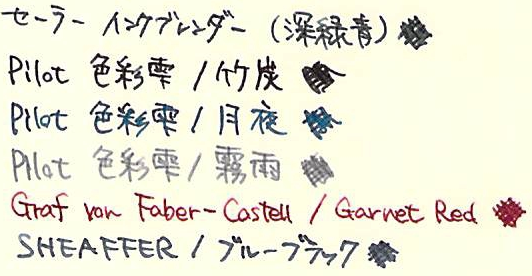 セーラー インクブレンダー (深緑青)
Pilot 色彩雫 / 竹炭
Pilot 色彩雫 / 月夜
Pilot 色彩雫 / 霧雨
Graf von Faber-Castell / Garnet Red
SHEAFFER / ブルーブラック